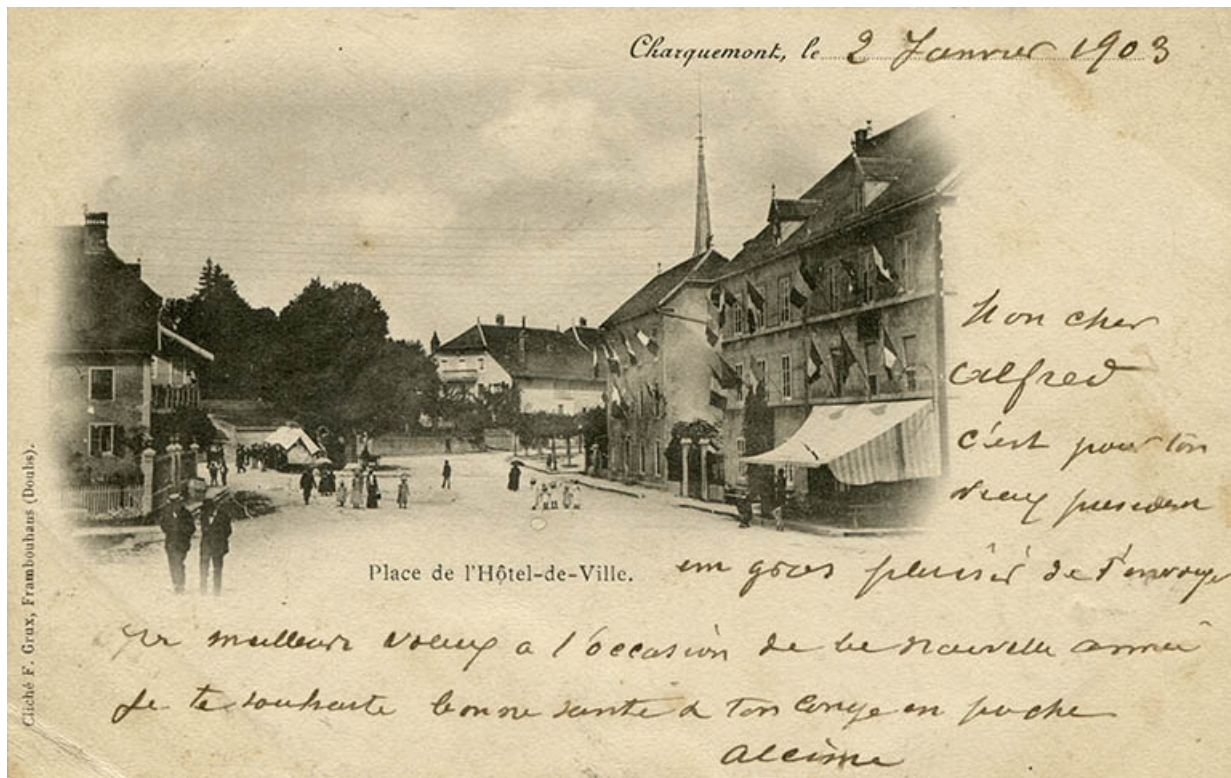 Charquemont, le 2 Janvier 1903
Mon cher
Alfred
c'est pour ton
vieux
Place de l'Hôtel-de-Ville.
un gros plaisir de t'envoyer
meilleur voeux a l'occasion de la nouvelle année
Je te souhaite bonne santé & ton conge en poche
Alcime
Cliché F. Grux, Frambouhans (Doubs).